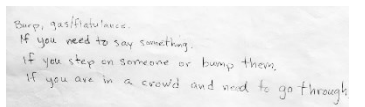 Burp, gas/flatulance.
If you need to say something.
If you step on someone or bump them.
If you are in a crowd and need to go through